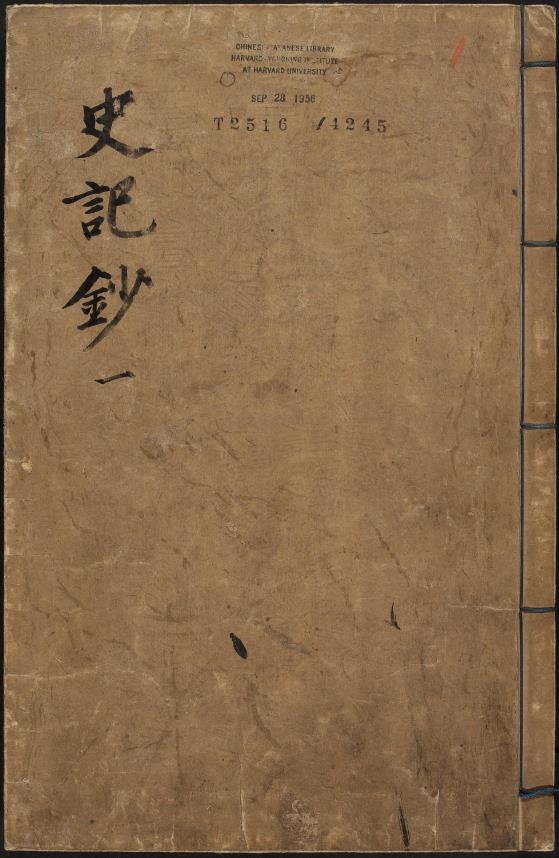 史記鈔一
CHINESE-JAPANESE LIBRARY
HARVARD-YENCHING INSTITUTE
AT HARVARD UNIVERSITY
SEP 28 1956
T2516 /4245